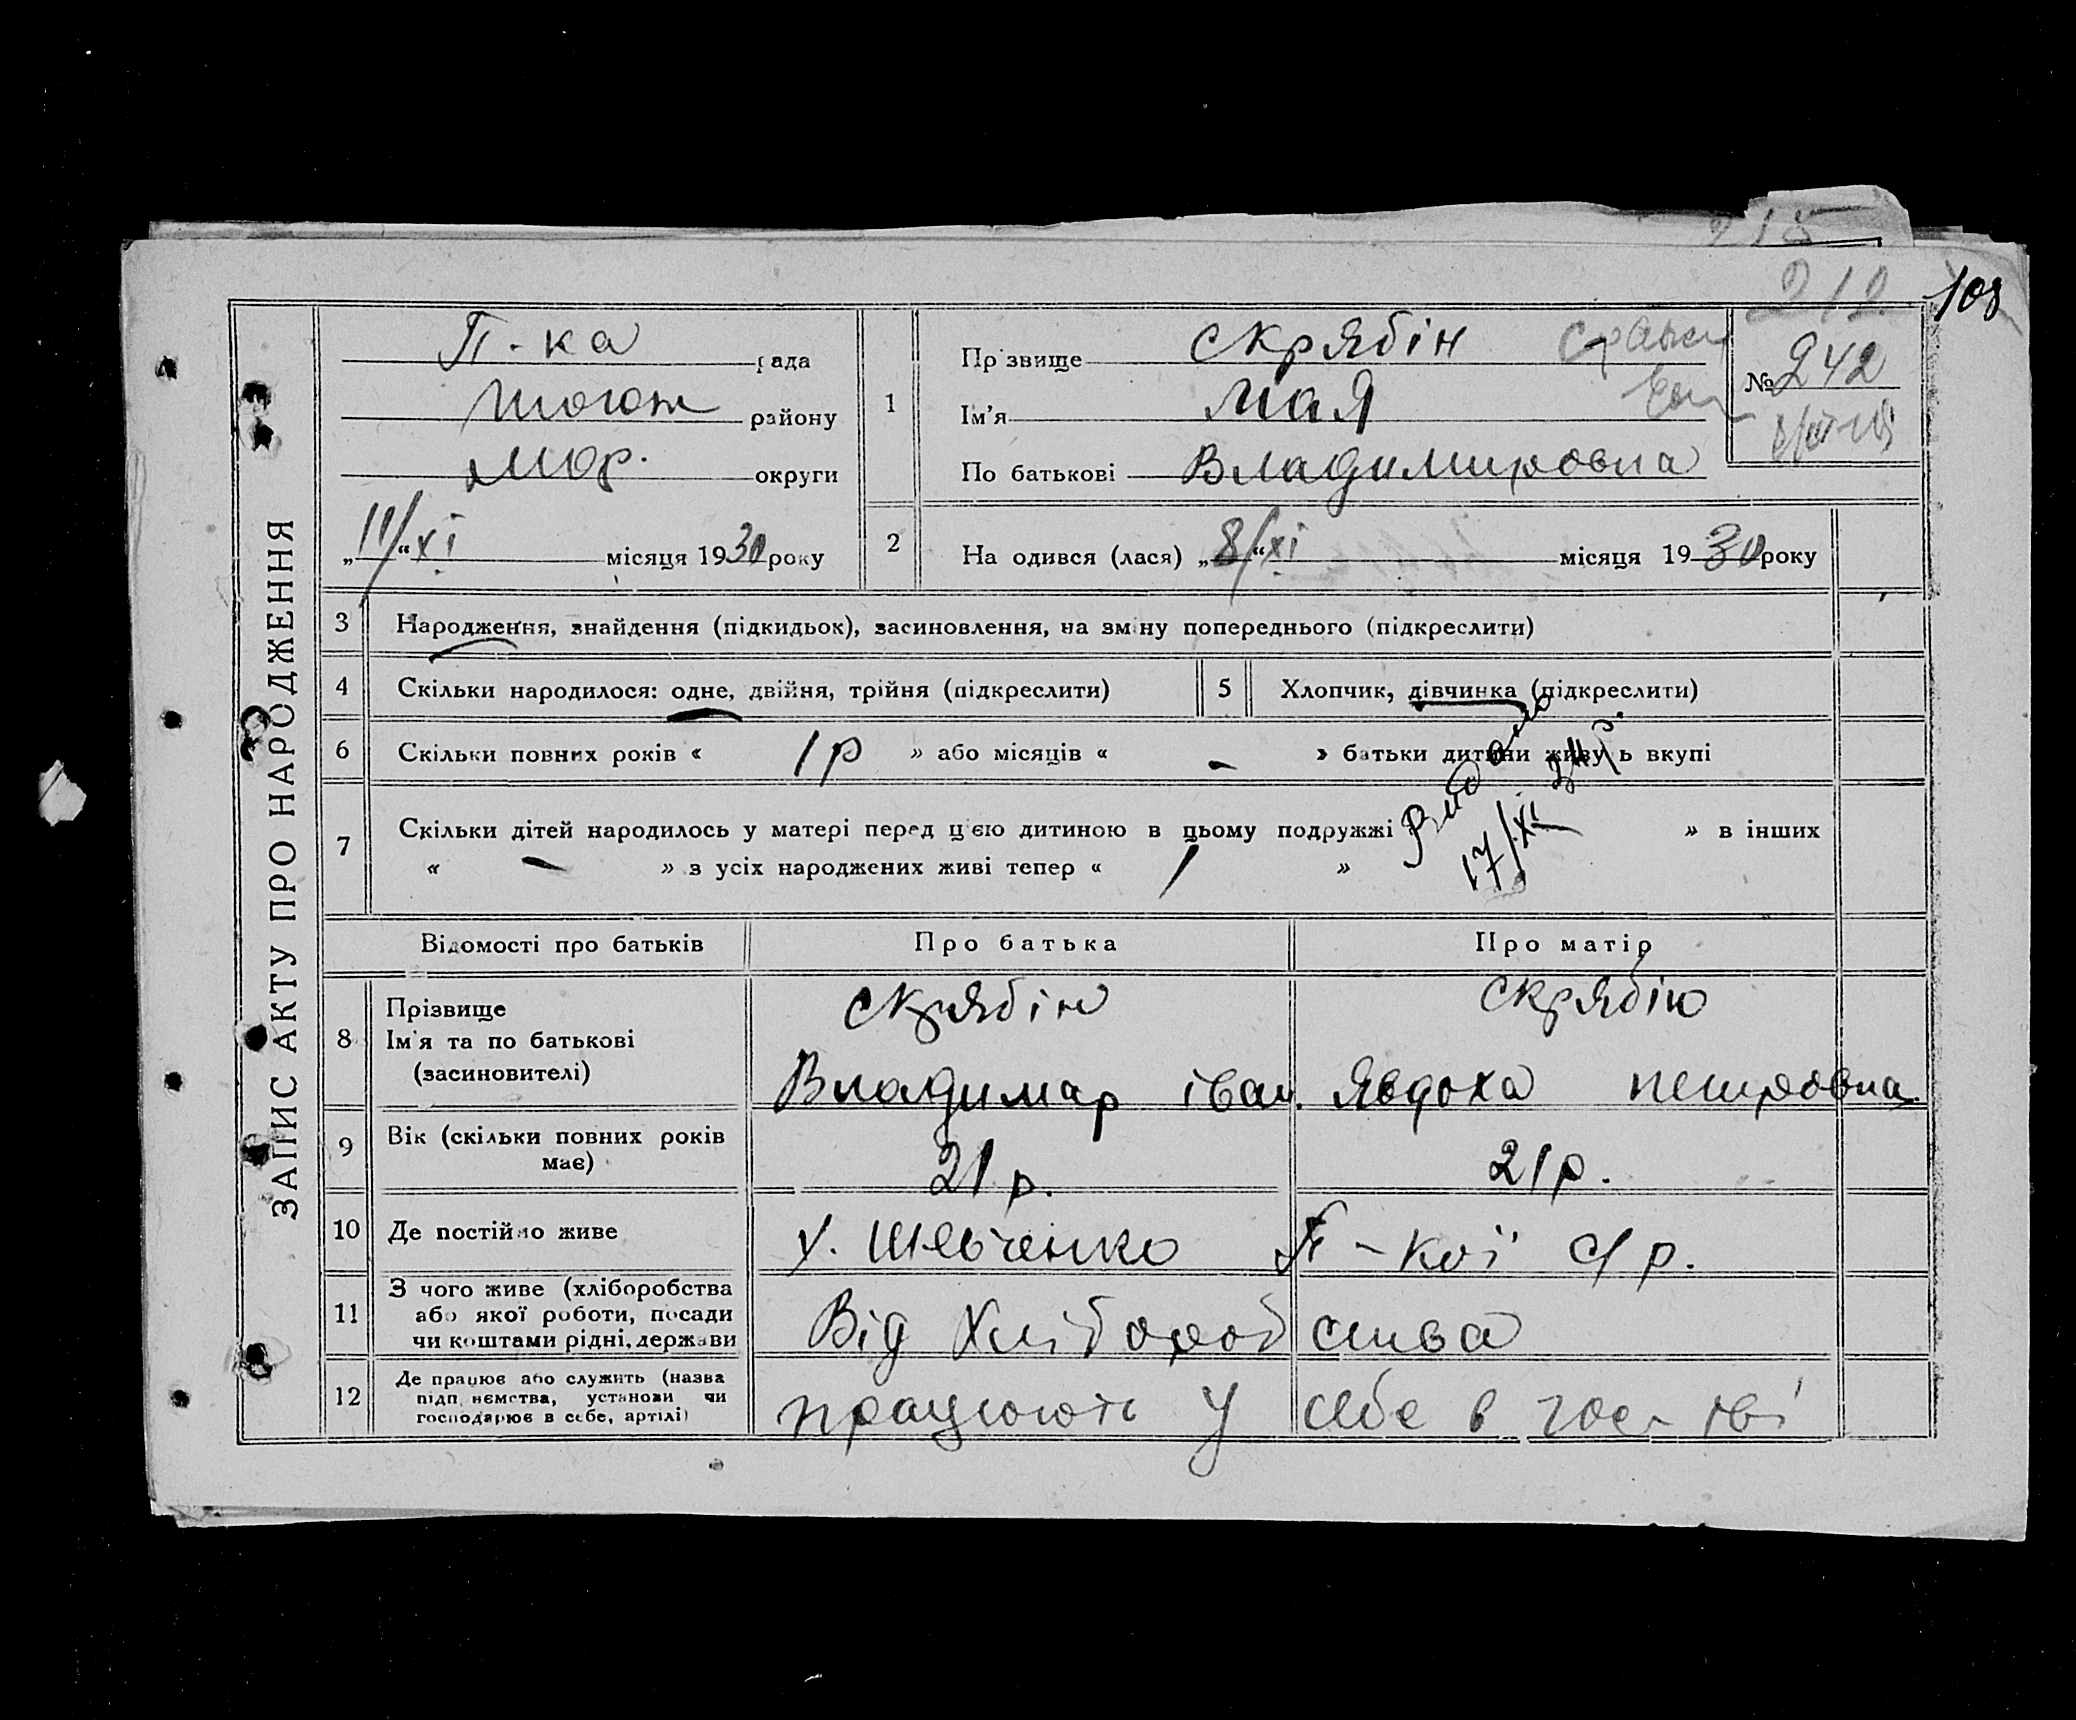 215
212
108
ЗАПИС АКТУ ПРО НАРОДЖЕННЯ
П-ка рада
району
Мар. округи
„11/“ XI місяця 1930 року
1
Прізвище Скрябін
Ім'я Мая
По батькові Владимировна
№ 242
2
На одився (лася) „8/“ XI місяця 1930 року
3 Народження, знайдення (підкидьок), засиновлення, на зміну попереднього (підкреслити)
4 Скільки народилося: одне, двійня, трійня (підкреслити)
5 Хлопчик, дівчинка (підкреслити)
6 Скільки повних років « 1 р » або місяців « - » батьки дитини живу ь вкупі
7 Скільки дітей народилось у матері перед цією дитиною в цьому подружжі » в інших
« - » з усіх народжених живі тепер « 1 »
Видано
17/XI 34 р.
Відомості про батьків
Про батька
Про матір
8 Прізвище
Ім'я та по батькові
(засиновителі)
Скрябін
Владимар Іван.
Скрябін
Явдоха Петровна
9 Вік (скільки повних років
має)
21 р.
21 р.
10 Де постійно живе
х. Шевченко П-кої с/р.
11 З чого живе (хліборобства
або якої роботи, посади
чи коштами рідні, держави
Від Хліборобства
12 Де працює або служить (назва
підп иємства, установи чи
господарює в себе, артілі)
працюють у себе в гос-тві